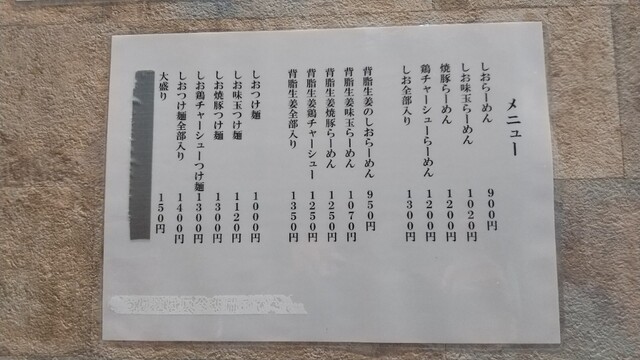 メニュー
しおらーめん 900円
しお味玉らーめん 1020円
焼豚らーめん 1200円
鶏チャーシューらーめん 1200円
しお全部入り 1300円
背脂生姜のしおらーめん 950円
背脂生姜味玉らーめん 1070円
背脂生姜焼豚らーめん 1250円
背脂生姜鶏チャーシュー 1250円
背脂生姜全部入り 1350円
しおつけ麺 1000円
しお味玉つけ麺 1120円
しお焼豚つけ麺 1300円
しお鶏チャーシューつけ麺 1300円
しおつけ麺全部入り 1400円
大盛り 150円